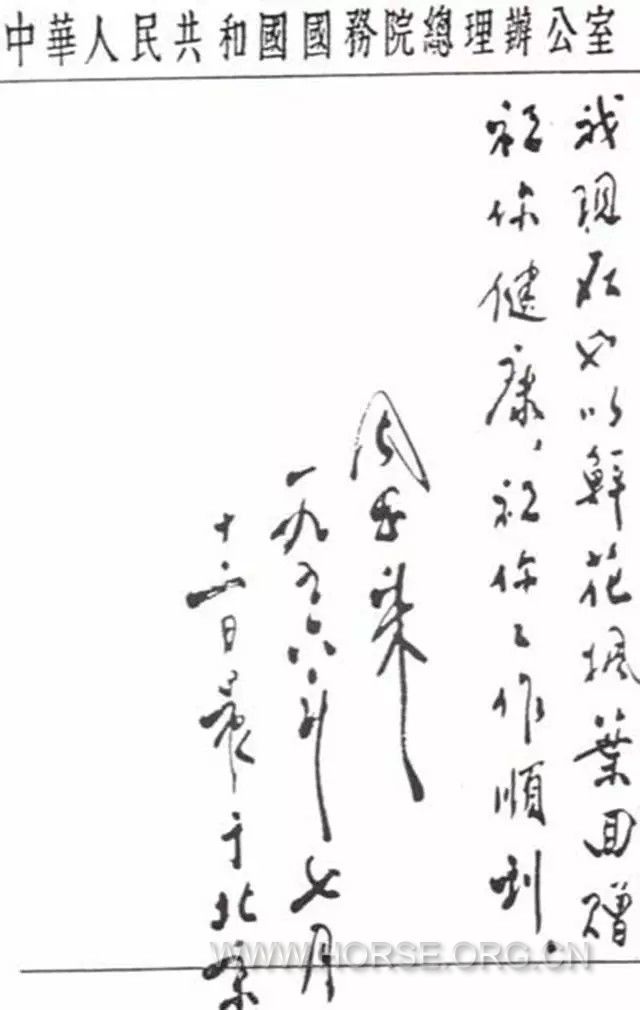 中華人民共和國國務院總理辦公室
我現在也以鮮花楓葉回贈
祝你健康，祝你工作順利．
周恩來
一九五六年七月
十六日晨于北京
WWW.HORSE.ORG.CN